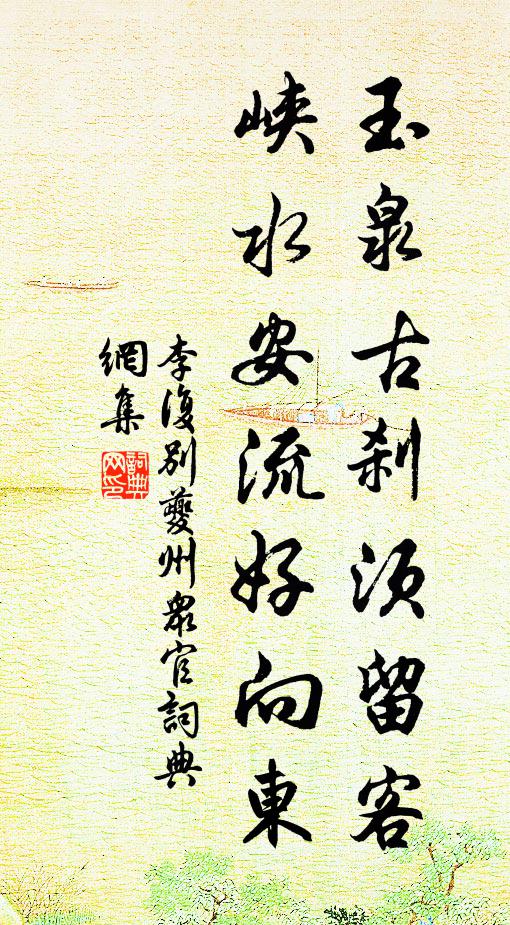 玉泉古刹須留客
峽水安流好向東
李復別夔州衆官詞典
網集
詞典
网印